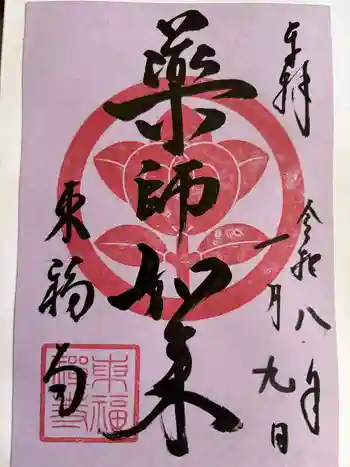 奉拝
令和八年
一月九日
薬師如来
東福寺
東福
禅寺